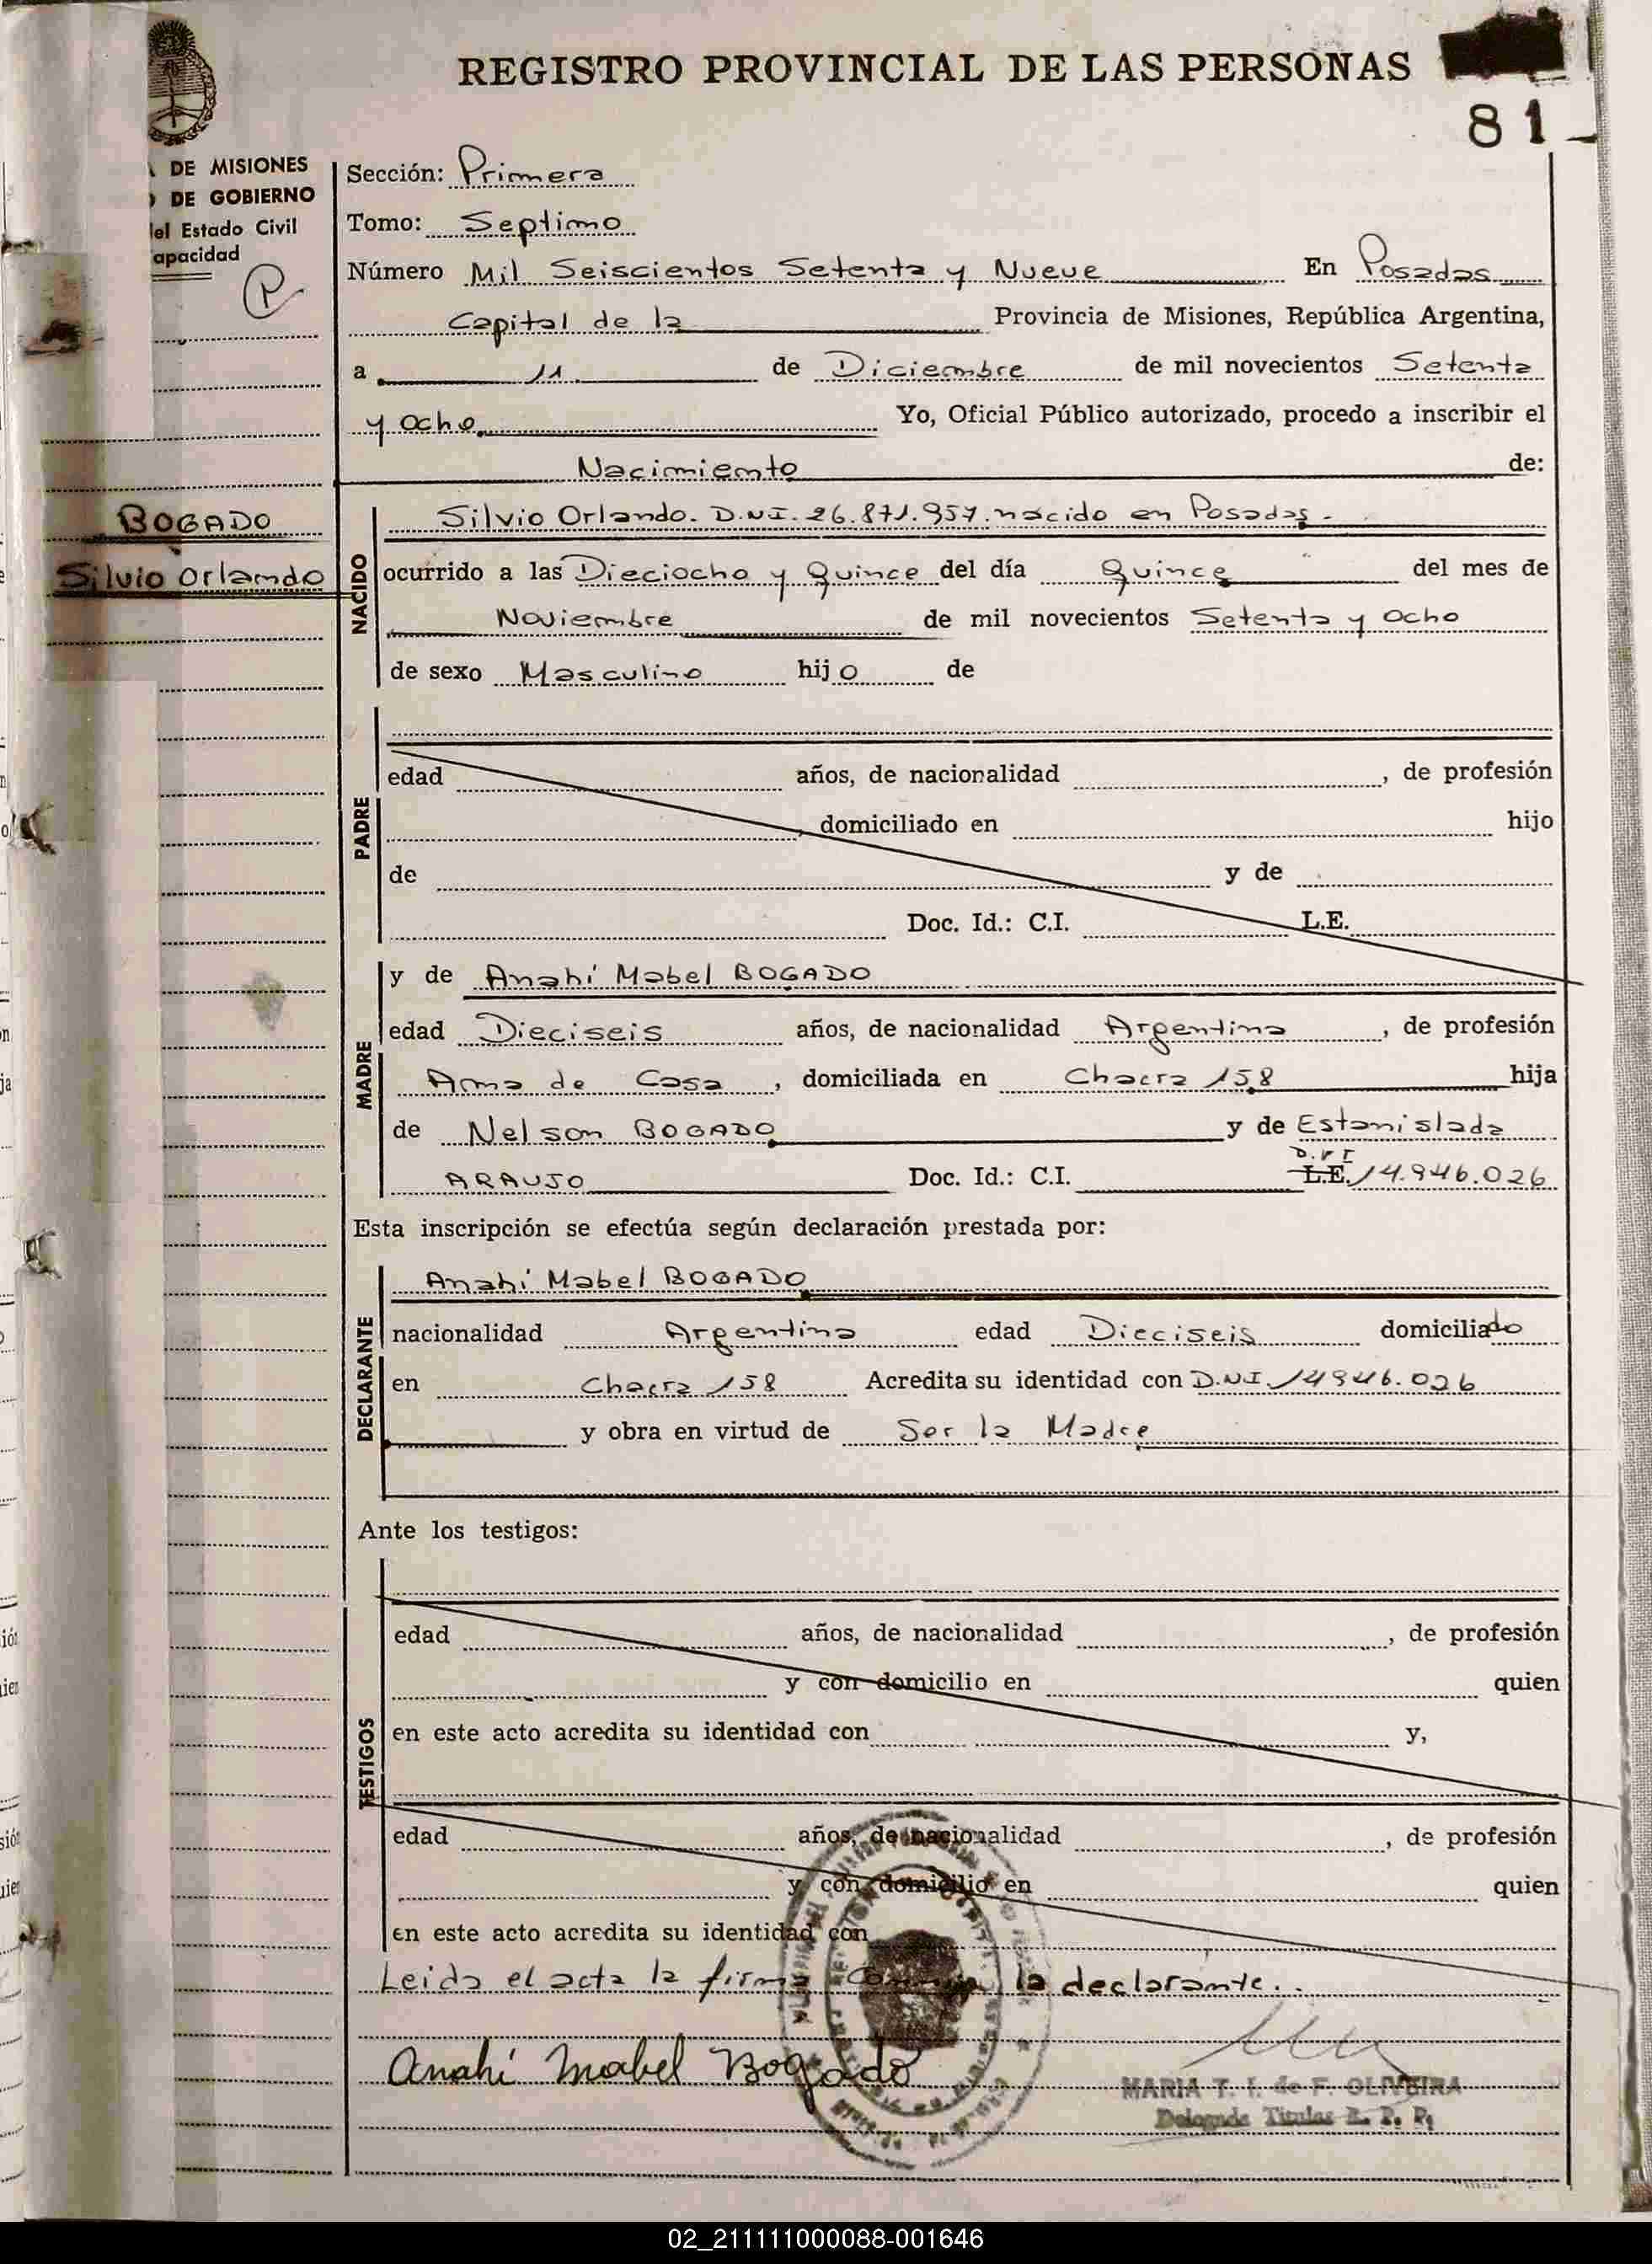 REGISTRO PROVINCIAL DE LAS PERSONAS
81
DE MISIONES
DE GOBIERNO
del Estado Civil
apacidad
P
Sección: Primera
Tomo: Septimo
Número Mil Seiscientos Setenta y Nueve En Posadas
Capital de la Provincia de Misiones, República Argentina,
a 11 de Diciembre de mil novecientos Setenta
y ocho Yo, Oficial Público autorizado, procedo a inscribir el
Nacimiento de:
BOGADO
Silvio Orlando
NACIDO
Silvio Orlando. D.N.I. 26.871.957. nacido en Posadas.-
ocurrido a las Dieciocho y Quince del día Quince del mes de
Noviembre de mil novecientos Setenta y Ocho
de sexo Masculino hijo de
PADRE
edad años, de nacionalidad , de profesión
, domiciliado en hijo
de y de
Doc. Id.: C.I. L.E.
MADRE
y de Anahí Mabel BOGADO
edad Dieciseis años, de nacionalidad Argentina , de profesión
Ama de Casa , domiciliada en Chacra 158 hija
de Nelson BOGADO y de Estanislada
D.N.I
ARAUJO Doc. Id.: C.I. L.E. 14.946.026
Esta inscripción se efectúa según declaración prestada por:
DECLARANTE
Anahí Mabel BOGADO
nacionalidad Argentina edad Dieciseis domiciliado
en Chacra 158 Acredita su identidad con D.N.I. 14946.026
y obra en virtud de Ser la Madre
Ante los testigos:
TESTIGOS
edad años, de nacionalidad , de profesión
y con domicilio en quien
en este acto acredita su identidad con y,
edad años, de nacionalidad , de profesión
y con domicilio en quien
en este acto acredita su identidad con
Leida el acta la firma conmigo la declarante.
Anahí Mabel Bogado
MARIA T. I. de F. OLIVEIRA
Delegada Titular R. P. P.
02_211111000088-001646